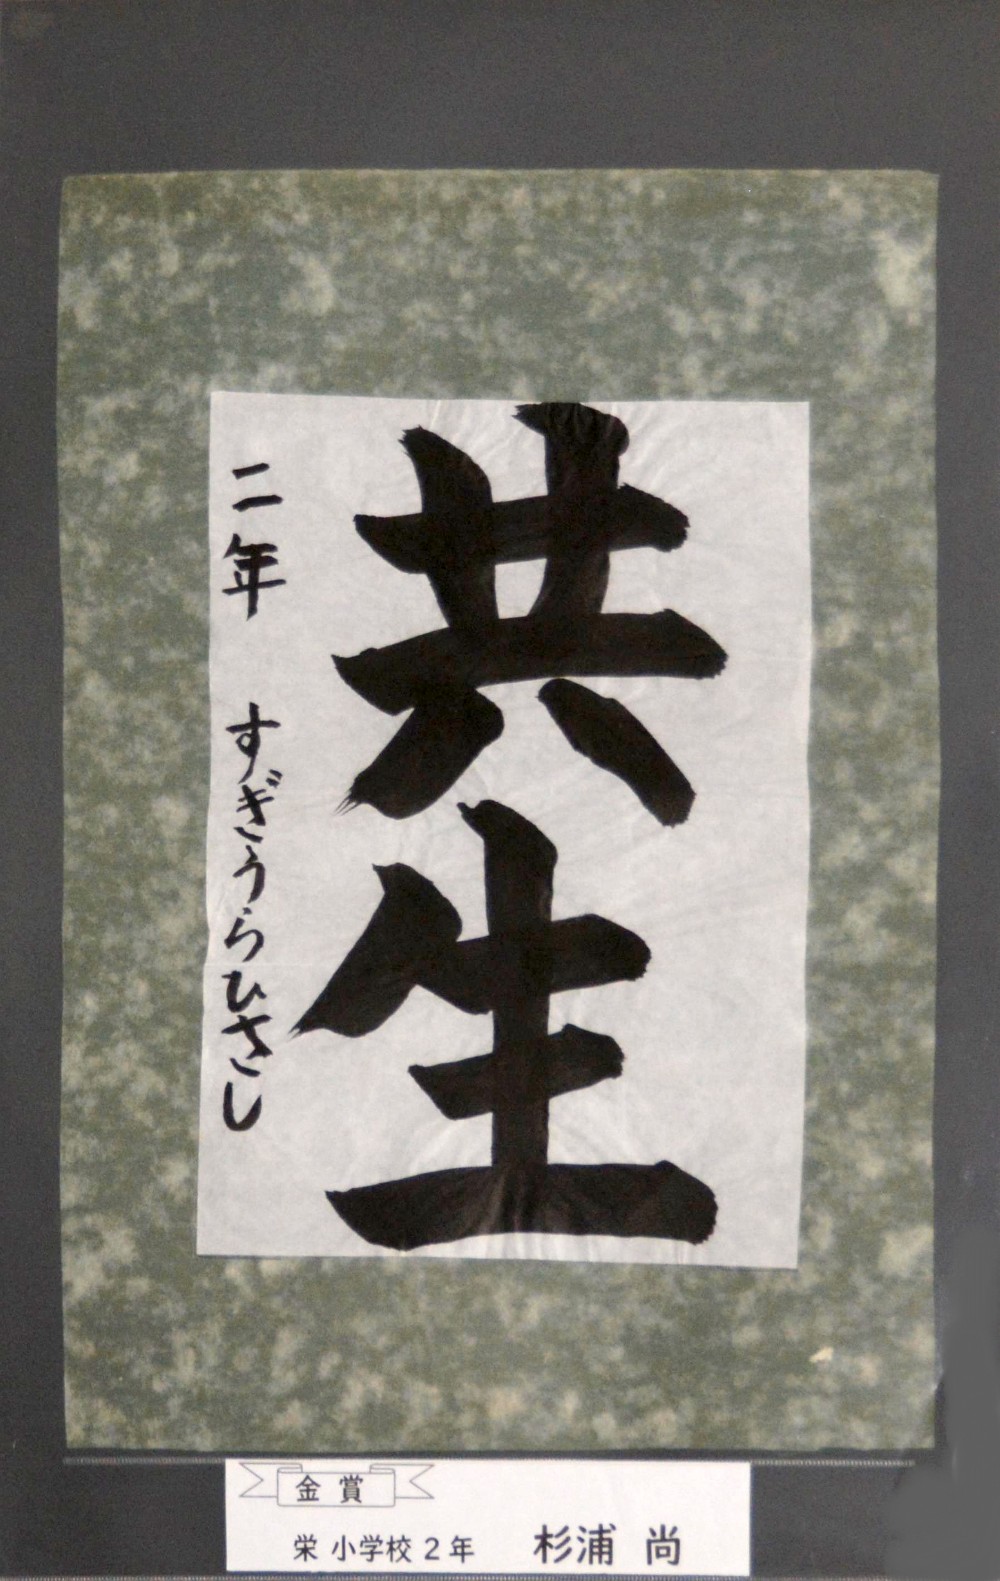 共生
二年 すぎうらひさし
金賞
栄 小学校 2年 杉浦 尚